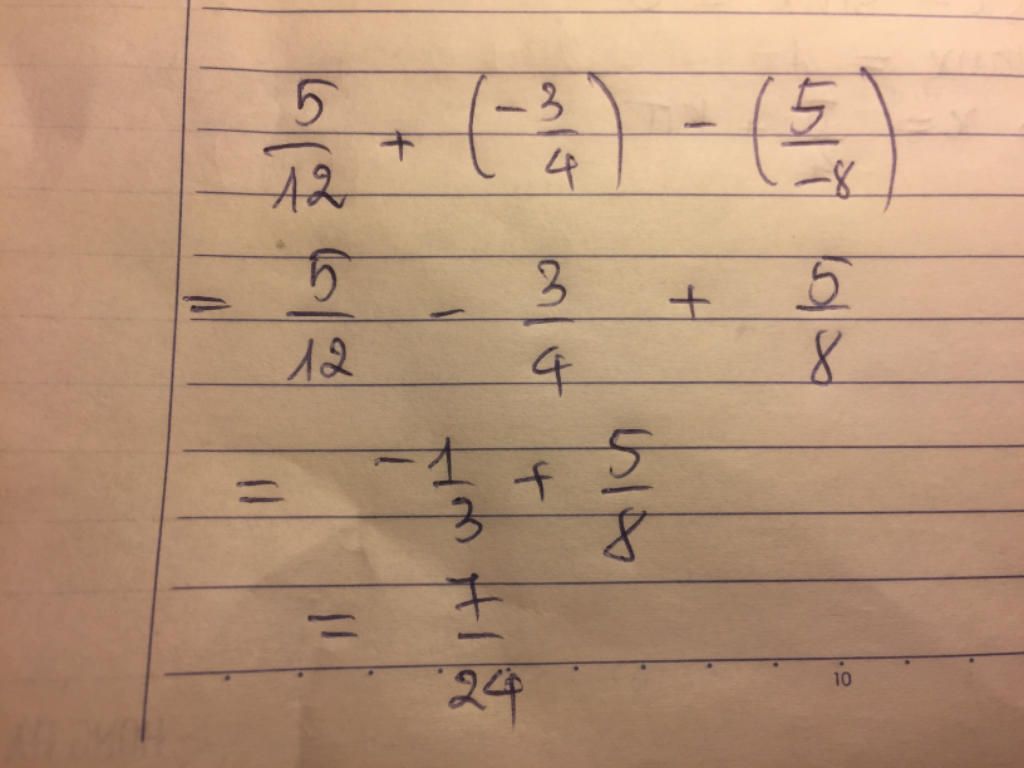 5/12 + (-3/4) - (5/-8)
= 5/12 - 3/4 + 5/8
= -1/3 + 5/8
= 7/24
10